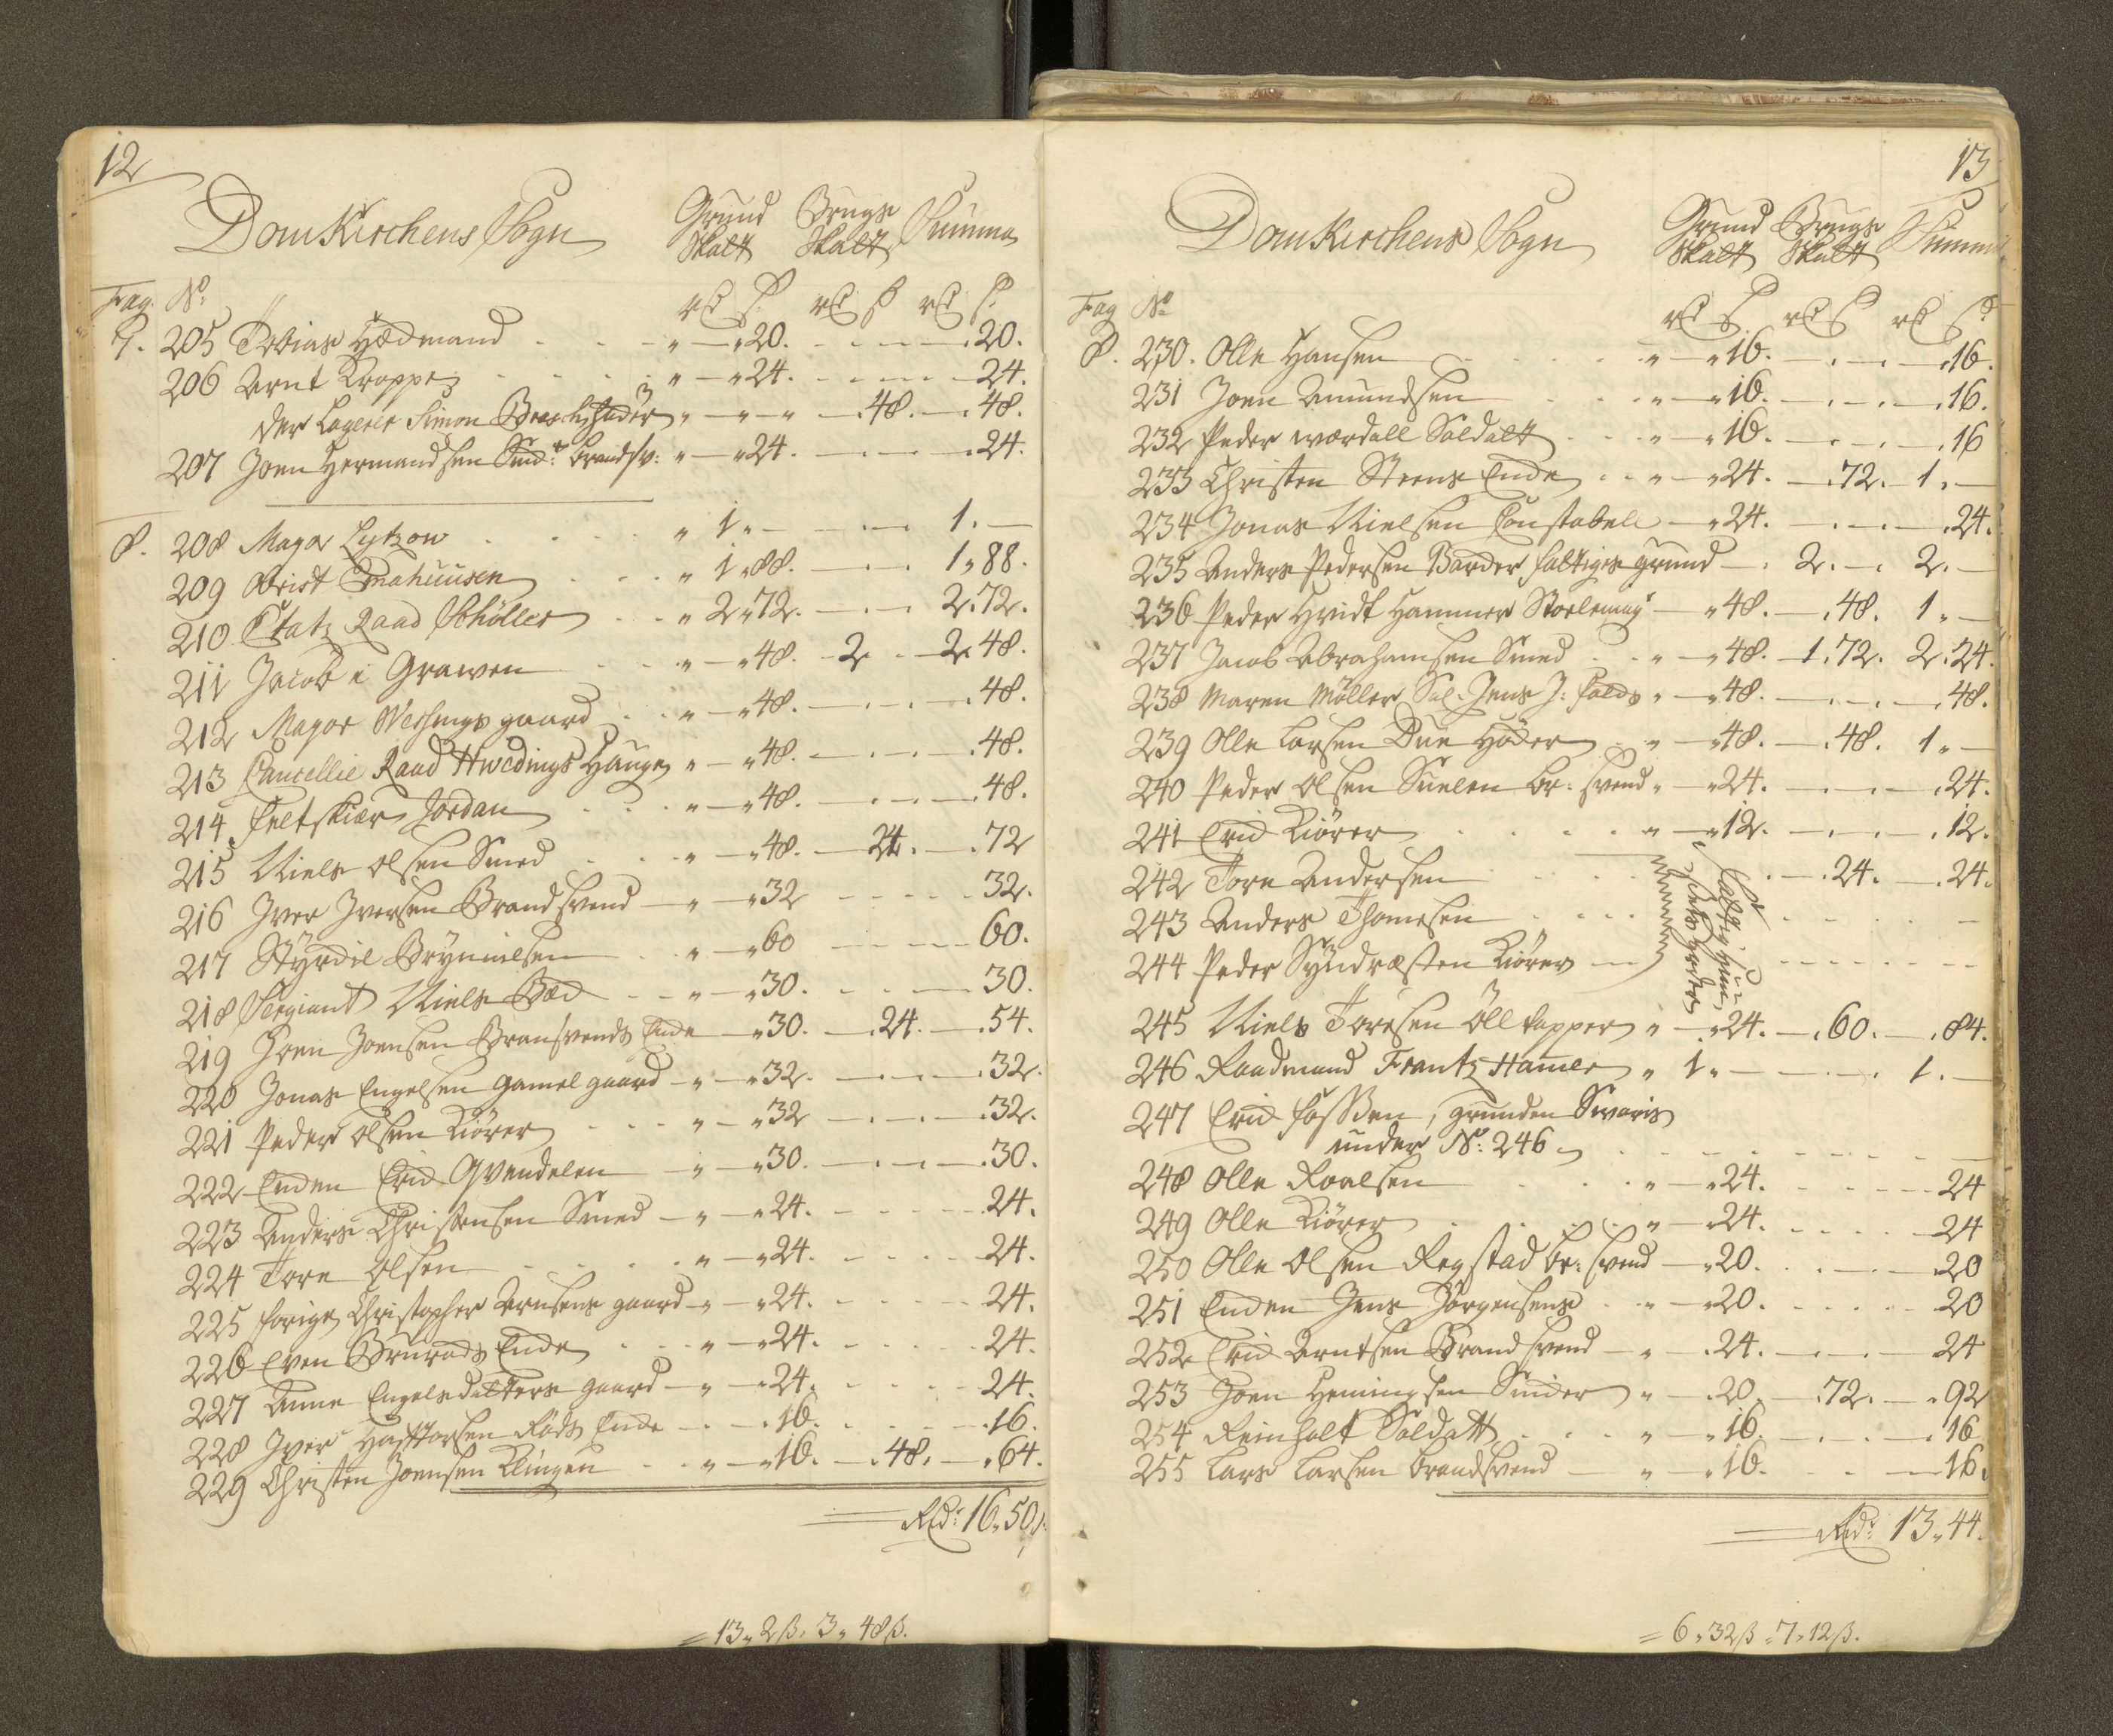 12
DomKirchens Sogn Grund Skatt Brugs Skatt Summa
Fag. No: rd s. rd s rd s.
7. 205 Tobias Hædmand " — " 20. — 20.
206 Arnt Kroppe " — " 24. — 24.
der Logerer Simon " — " — 48. — 48.
207 Joen Hermandsen Brandsv: " — " 24. — 24.
8. 208 Mayor Lytzow " 1 " — 1. —
209 Obrist " 1 " 88. — 1 " 88.
210 Etatz Raad Schøller " 2 " 72. — 2. 72.
211 Jacob i Grawen " — " 48. 2 — 2. 48.
212 Mayor Wessings gaard " — " 48. — 48.
213 Cancellie Raad Hwedings Hauge " — " 48. — 48.
214 Feltskiær Jordan " — " 48. — 48.
215 Niels Olsen Smed " — " 48. — 24. — 72
216 Iver Iversen Brandsvend — " — " 32 — 32.
217 Styrdil Brynnilsen " — " 60 — 60.
218 Sergiant Niels Bæd " — " 30. — 30.
219 Joen Joensen Bransvends Ende — " 30. — 24. — 54.
220 Jonas Engelsen gamel gaard — " — " 32. — 32.
221 Peder Olsen Kiører " — " 32 — 32.
222 Enden Erid Qvendelen — " — " 30. — 30.
223 Anders Christensen Smed — " — " 24. — 24.
224 Tore Olsen " — " 24. — 24.
225 forige Christopher Arnsens gaard — " — " 24. — 24.
226 Even Brurods Ende " — " 24. — 24.
227 Anne Engelsdatters gaard — " — " 24. — 24.
228 Iver Hafftorsen Røds Ende — 16. — 16.
229 Christen Joensen Klingen " — " 16. — 48. — 64.
Rdr: 16 " 50 s.
= 13 " 2 ß. 3 " 48 ß.
13
DomKirchens Sogn Grund Skatt Brugs Skatt Summa
Fag No rd s rd s rd s
8. 230. Olle Hansen " — " 16. — 16.
231 Joen Amundsen " — " 16. — 16.
232 Peder wærdall Soldatt " — " 16. — 16
233 Christen Steens Ende " — " 24. — 72. 1. —
234 Jonas Nielsen Constabell — " 24. — 24.
235 Anders Pedersen Barder fattiges grund — 2. — 2. —
236 Peder Hvidt Hammer Stoelmag — " 48. — 48. 1 " —
237 Jacob Abrahamsen Smed " — " 48. 1. 72. 2. 24.
238 Maren Møller Sal. Jens J: Falds " — " 48. — 48.
239 Olle Larsen Due Høder " — " 48. — 48. 1 " —
240 Peder Olsen Snelen br: svend " — " 24. — 24.
241 Erid Kiører " — " 12. — 12.
242 Tore Andersen — 24. — 24.
243 Anders Thomesen
244 Peder Syndræsten Kiører
Fattig huus
245 Niels Toresen Ølltapper " — " 24. — 60. — 84.
246 Raadmand Frantz Hamer " 1 " — 1. —
247 Erid Fossen, grunden Swaris
under No: 246
248 Olle Roalsen " — " 24. — 24
249 Olle Kiører " — " 24. — 24
250 Olle Olsen Regstad br: svend — " 20. — 20
251 Enden Jens Jørgensens " — " 20. — 20
252 Erid Arntsen Brandsvend — " — 24. — 24
253 Joen Hemingsen Snider " — 20. — 72. — " 92
254 Reinholt Soldatt " — " 16. — 16
255 Lars Larsen brandsvend — " — " 16. — 16.
Rdr: 13 " 44.
= 6 " 32 ß = 7 " 12 ß.